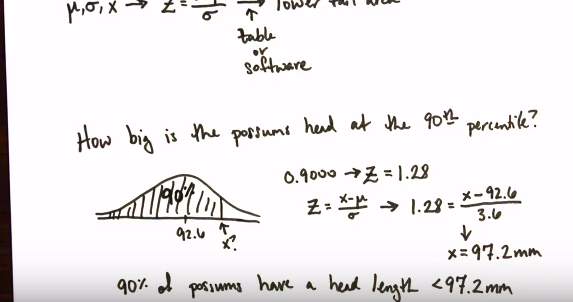 μ, σ, x → Z = σ → lower tail area
↑
table
or
software
How big is the possums head at the 90th percentile?
0.9000 → Z = 1.28
90%
Z = x-μ/σ → 1.28 = x-92.6/3.6
92.6
↑
x?
↓
x = 97.2mm
90% of possums have a head length < 97.2mm